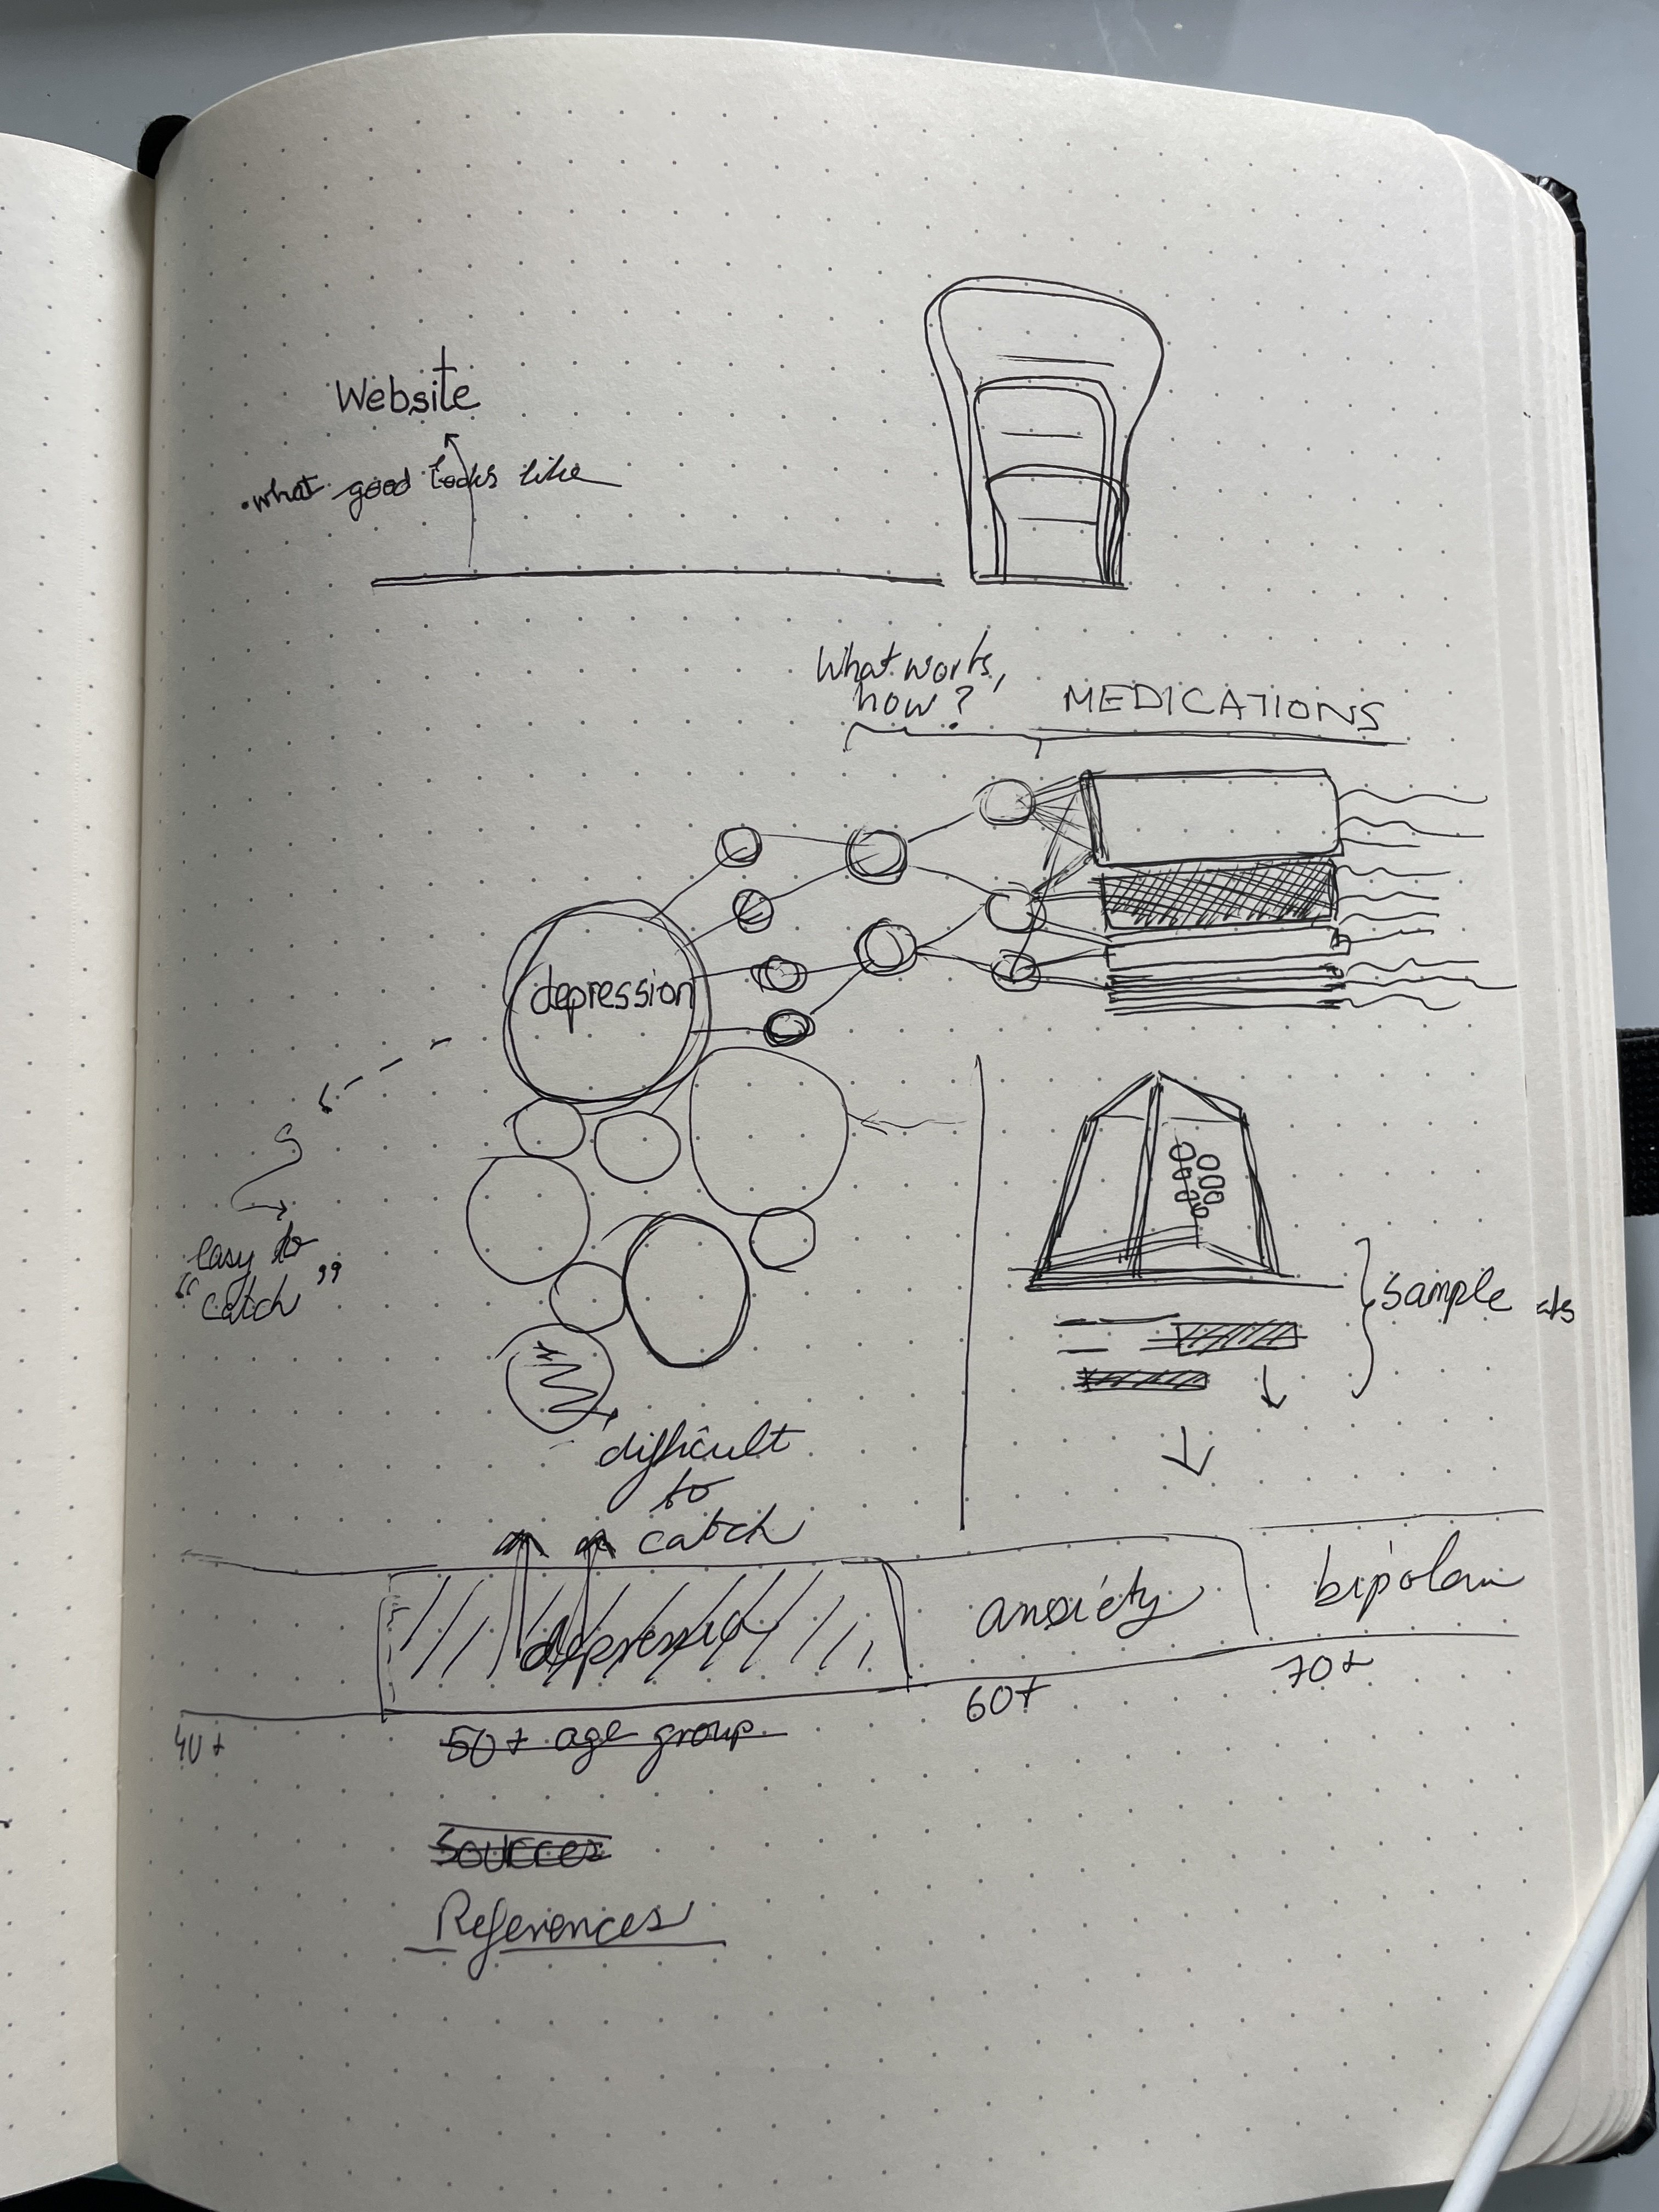 Website
what good looks like
What works,
how?
MEDICATIONS
depression
easy to
"catch"
sample
difficult
to
catch
depression
anxiety
bipolar
40+
50+ age group
60+
70+
Sources
References